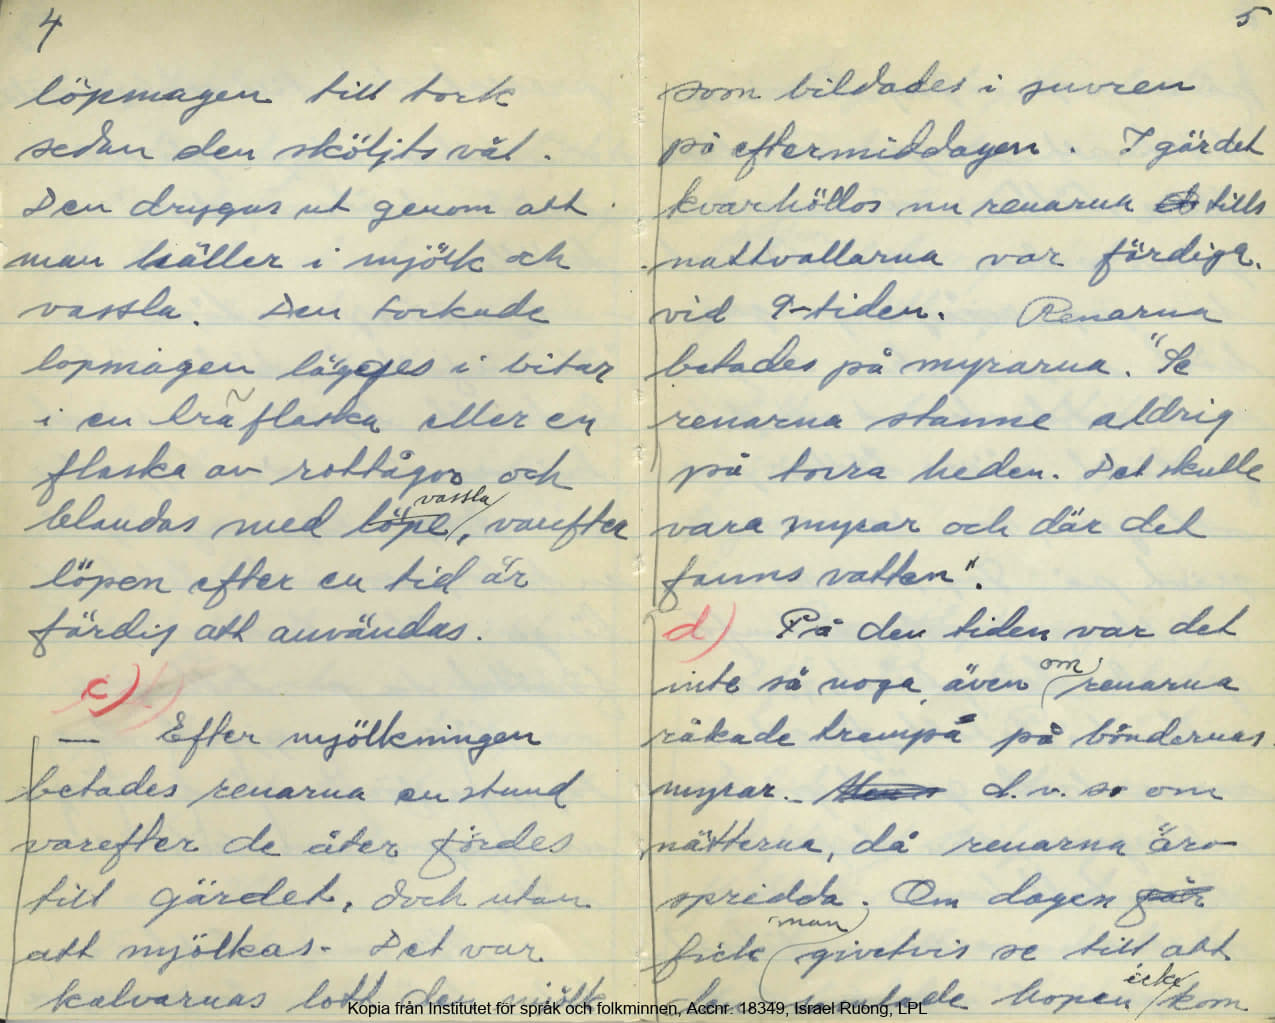 4
löpmagen till tork
sedan den sköljts väl.
Den drygas ut genom att
man häller i mjölk och
vassla. Den torkade
lopmagen lägges i bitar
i en träflaska eller en
flaska av rottågor och
blandas med löpe, vassla, varefter
löpen efter en tid är
färdig att användas.
c)
— Efter mjölkningen
betades renarna en stund
varefter de åter fördes
till gärdet, doch utan
att mjölkas - Det var
kalvarnas lott den mjölk
5
som bildades i juvren
på eftermiddagen. I gärdet
kvarhöllos nu renarna tills
nattvallarna var färdiga.
vid 9-tiden. Renarna
betades på myrarna. "Se
renarna stanne aldrig
på torra heden. Det skulle
vara myrar och där det
fanns vatten".
d) På den tiden var det
inte så noga, även om renarna
råkade trampa på böndernas
myrar. d.v. s. om
nätterna, då renarna äro
spridda. Om dagen får
fick man givetvis se till att
den samlade hopen icke kom
Kopia från Institutet för språk och folkminnen, Accnr. 18349, Israel Ruong, LPL